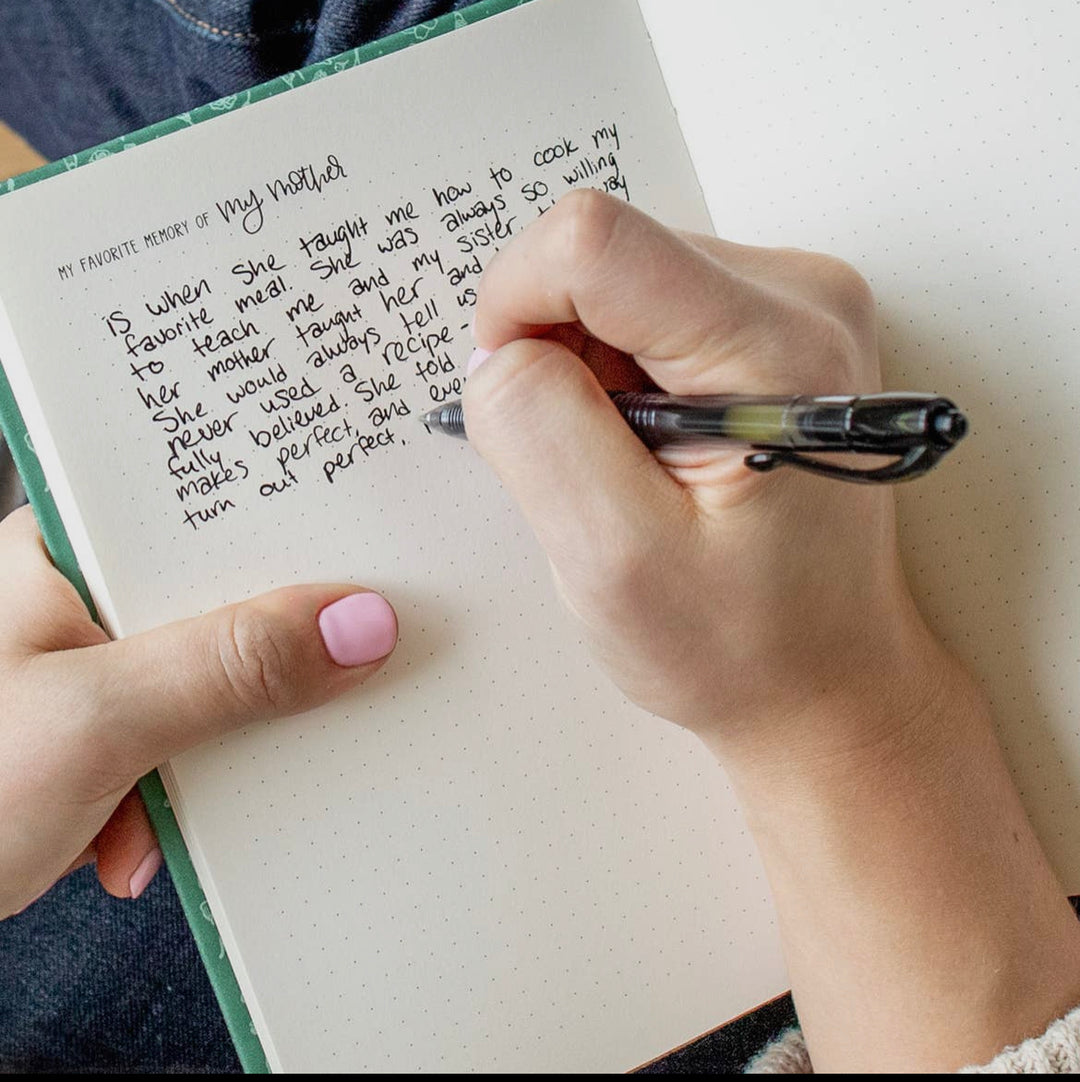 MY FAVORITE MEMORY OF my mother
is when she taught me how to cook my
favorite meal. She was always so willing
to teach me and my sister way
her mother taught her and
She would always tell us
never used a recipe -
fully believed she told
makes perfect, and
turn out perfect.